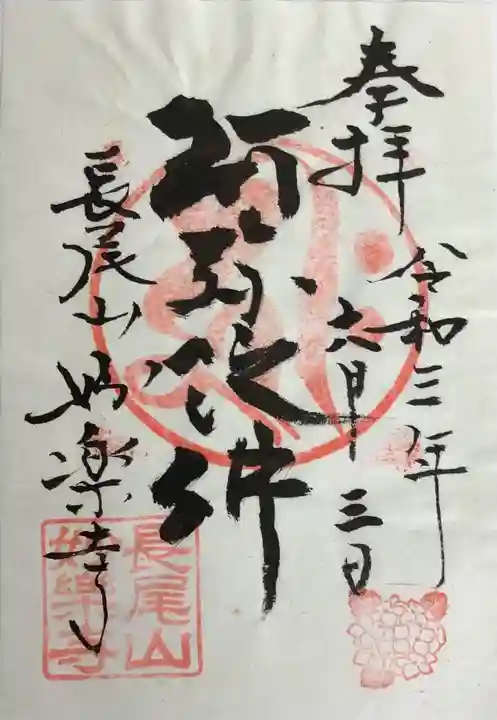 奉拝
令和三年
六月三日
阿弥陀佛
長尾山妙楽寺
長尾山
妙樂寺